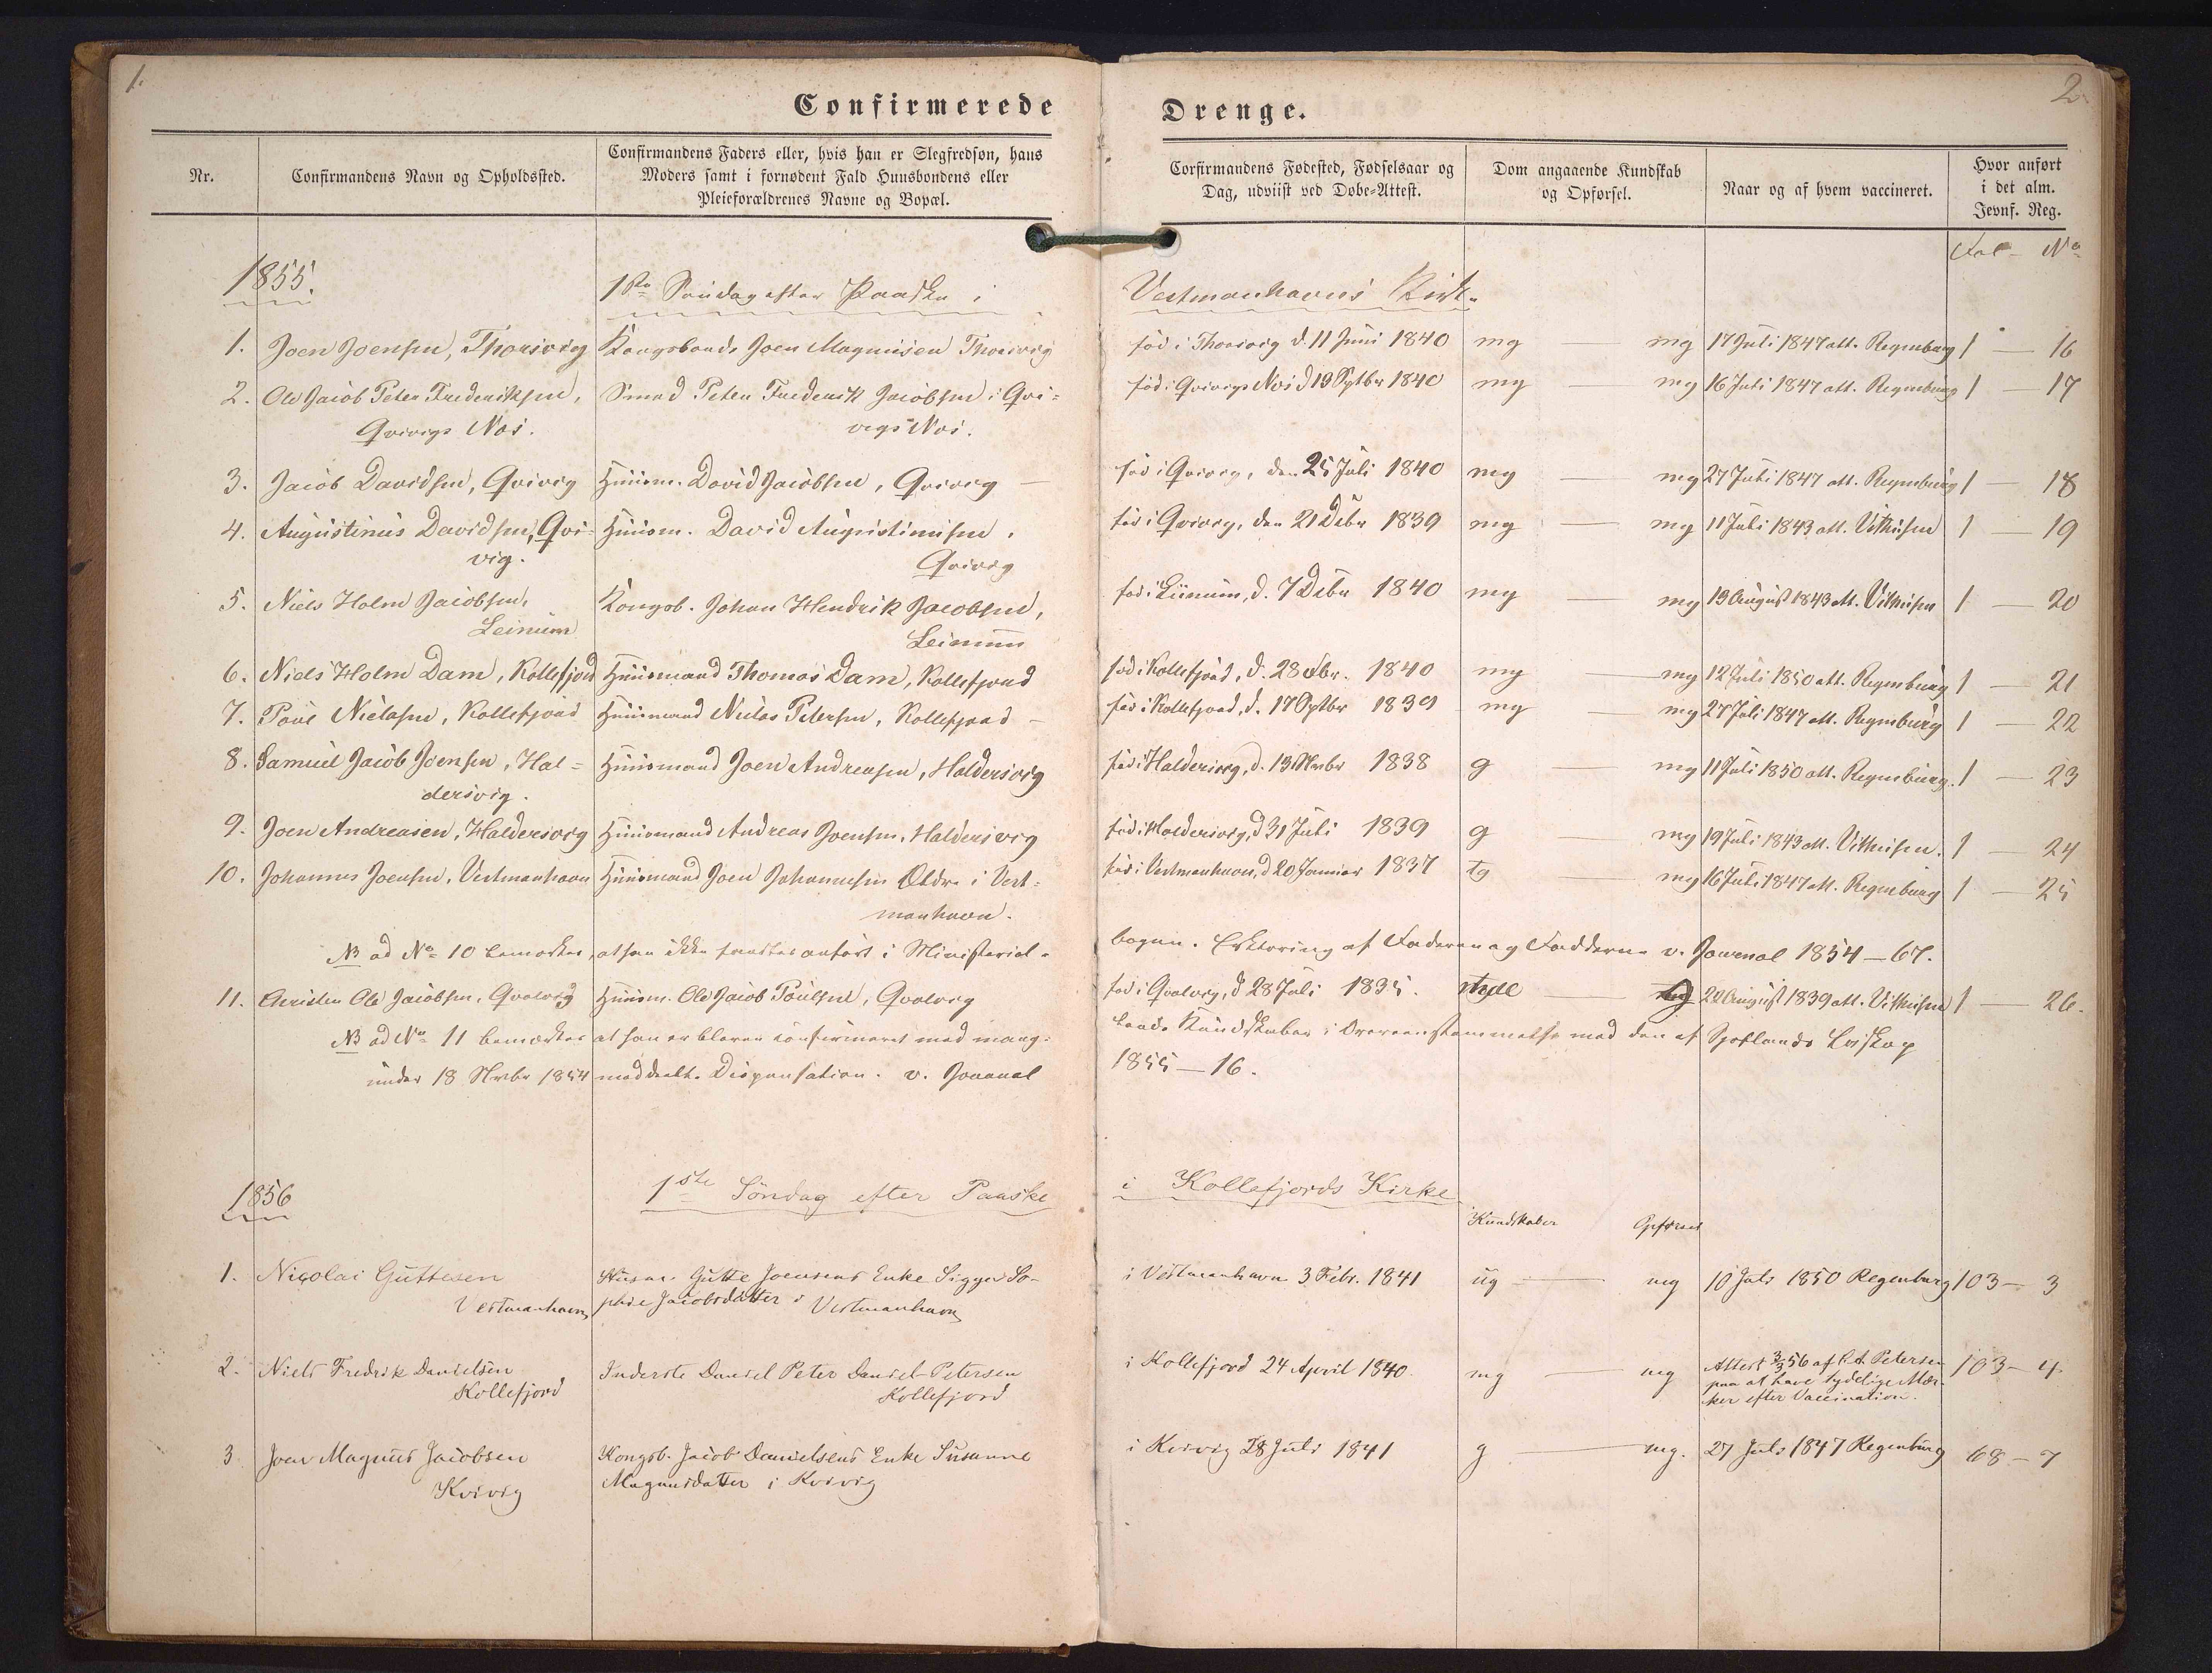 1.
2
Confirmerede Drenge.
Nr.
Confirmandens Navn og Opholdssted.
Confirmandens Faders eller, hvis han er Slegfredsøn, hans
Moders samt i fornødent Fald Huusbondens eller
Pleieforældrenes Navne og Bopæl.
Corfirmandens Fødested, Fødselsaar og
Dag, udviist ved Døbe-Attest.
Dom angaaende Kundskab
og Opførsel.
Naar og af hvem vaccineret.
Hvor anført
i det alm.
Jevnf. Reg.
Fol - No
1855. 1ste Søndag efter Paaske i Vestmanhavns Kirke
1. Joen Joensen, Thorsvig Kongsbonde Joen Magnusen Thorsvig fød i Thorsvig d. 11 Juni 1840 mg — mg 17 Juli 1847 att. Regenburg 1 — 16
2. Ole Jacob Peter Frederiksen, Smed Peter Frederik Jacobsen i Qvi= fød i Qvivigs Noi d 19 Sptbr 1840 mg — mg 16 Juli 1847 att. Regenburg 1 — 17
Qvivigs Noi. vigs Noi.
3. Jacob Davidsen, Qvivig Huusm. David Jacobsen, Qvivig — fød i Qvivig, den 25 Juli 1840 mg — mg 27 Juli 1847 att. Regenburg 1 — 18
4. Augustinus Davidsen, Qvi= Huusm. David Augustinusen, fød i Qvivig, den 21 Debr 1839 mg — mg 11 Juli 1843 att. Vithusen 1 — 19
vig. Qvivig
5. Niels Holm Jacobsen, Kongsb. Johan Hendrik Jacobsen, fød i Leinum, d. 7 Debr 1840 mg — mg 19 August 1843 att. Vithusen 1 — 20
Leinum Leinum
6. Niels Holm Dam, Kollefjord Huusmand Thomas Dam, Kollefjord fød i Kollefjord, d. 28 Obr. 1840 mg — mg 12 Juli 1850 att. Regenburg 1 — 21
7. Poul Nielasen, Kollefjord Huusmand Nielas Petersen, Kollefjord — fød i Kollefjord, d. 17 Sptbr 1839 mg — mg 27 Juli 1847 att. Regenburg 1 — 22
8. Samuel Jacob Joensen, Hal= Huusmand Joen Andreasen, Haldersvig fød i Haldersvig, d. 13 Novbr 1838 g — mg 11 Juli 1850 att. Regenburg. 1 — 23
dersvig.
9. Joen Andreasen, Haldersvig Huusmand Andreas Joensen, Haldersvig fød i Haldersvig, d 31 Juli 1839 g — mg 19 Juli 1843 att. Vithusen. 1 — 24
10. Johannes Joensen, Vestmanhavn Huusmand Joen Johannesen Ældre i Vest= fød i Vestmanhavn, d 20 Januar 1837 tg — mg 16 Juli 1847 att. Regenburg 1 — 25
manhavn.
NB ad No 10 bemærkes, at han ikke fandtes anført i Ministerial= bogen. Erklæring af Faderen og Fadderne v. Journal 1854 — 67.
11. Christen Ole Jacobsen, Qvalvig Huusm. Ole Jacob Poulsen, Qvalvig fød i Qvalvig, d 28 Juli 1835. — 22 August 1839 att. Vithusen 1 — 26.
NB ad No 11 bemærkes at han er bleven confirmeret med mang= lende Kundskaber i Overeensstemmelse med den af Sjællands Biskop
under 18 Novbr 1854 meddeelte Dispensation. v. Journal 1855 — 16.
1856 1ste Søndag efter Paaske i Kollefjords Kirke
Kundskaber Opførsel
1. Nicolai Guttesen Husm. Gutte Joensens Enke Sigga So- i Vestmanhavn 3 Febr. 1841 ug — mg 10 Juli 1850 Regenburg 103 — 3
Vestmanhavn phie Jacobsdatter i Vestmanhavn
2. Niels Fredrik Danielsen Inderste Daniel Peter Daniel Petersen i Kollefjord 24 April 1840. mg — mg Attest 3/3 56 af P. A. Petersen 103 — 4.
Kollefjord Kollefjord paa at have tydelige Mær-
ker efter Vaccination.
3 Joen Magnus Jacobsen Kongsb. Jacob Danielsens Enke Susanne i Kvivig 28 Juli 1841 g — mg. 27 Juli 1847 Regenburg 68 — 7
Kvivig Magnusdatter i Kvivig